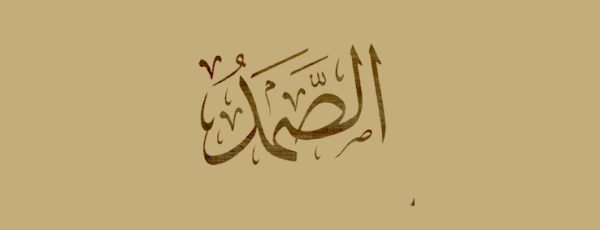 الصَّمَدُ